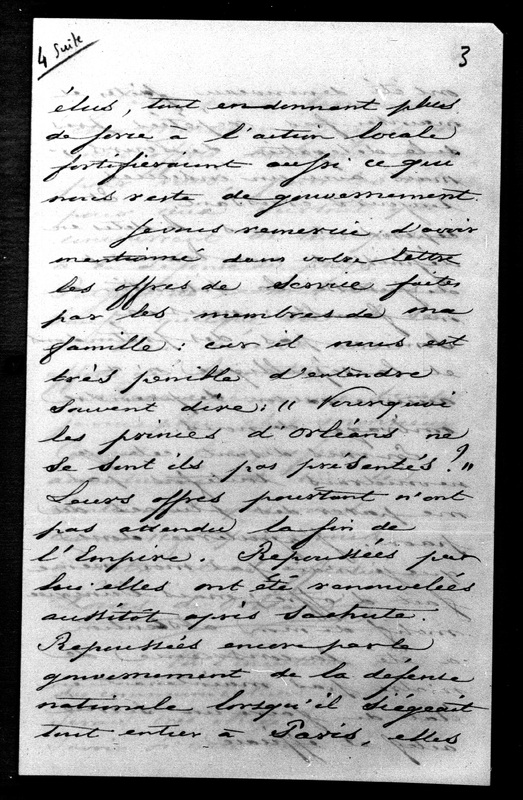 4 Suite
3
élus, tout en donnant plus
de force a l'action locale
fortifieraient aussi ce qui
nous reste de gouvernement.
Je vous remercie d'avoir
mentionné dans votre lettre
les offres de service faites
par les membres de ma
famille : car il nous est
très penible d'entendre
souvent dire : " Pourquoi
les princes d'Orléans ne
se sont ils pas présentés ? "
Leurs offres pourtant n'ont
pas attendu la fin de
l'Empire. Repoussées par
lui elles ont été renouvelées
aussitôt après sa chute.
Repoussées encore par le
gouvernement de la défense
nationale lorsqu'il siégeait
tout entier à Paris, elles